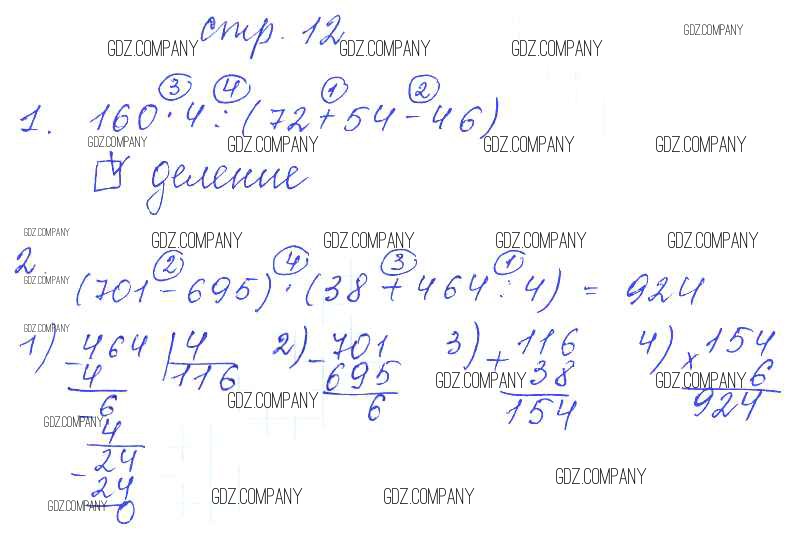 стр. 12
GDZ.COMPANY GDZ.COMPANY GDZ.COMPANY GDZ.COMPANY
3 4 1 2
1. 160 · 4 : (72 + 54 - 46)
GDZ.COMPANY GDZ.COMPANY GDZ.COMPANY GDZ.COMPANY
деление
GDZ.COMPANY GDZ.COMPANY GDZ.COMPANY GDZ.COMPANY GDZ.COMPANY
2 4 3 1
2. (701 - 695) · (38 + 464 : 4) = 924
GDZ.COMPANY
GDZ.COMPANY
1) - 464 | 4 2) - 701 3) + 116 4) x 154
4 116 695 38 6
GDZ.COMPANY GDZ.COMPANY GDZ.COMPANY
- 6 6 154 924
GDZ.COMPANY
4
- 24
24
GDZ.COMPANY GDZ.COMPANY GDZ.COMPANY GDZ.COMPANY
0